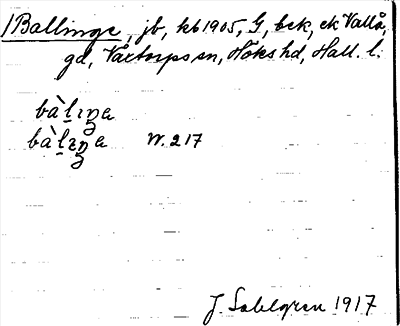 /Ballinge, jb, kb 1905, G, bek, ek Vallå,
gd, Vaxtorps sn, Höks hd, Hall. l.
bàlıŋa
bàlıŋa W. 217
J. Sahlgren 1917